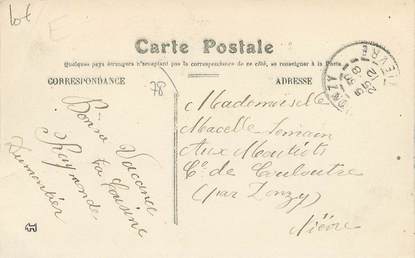 lot
E
Carte Postale
Quelques pays étrangers n'acceptant pas la correspondance de ce côté, se renseigner à la Poste.
CORRESPONDANCE
78
ADRESSE
Bonne Vacance
ta Cousine
Raymonde
Dumontier
Mademoiselle
Aux Moutots
Cne de Couloutre
(par Donzy)
Nièvre
DONZY
NIEVRE